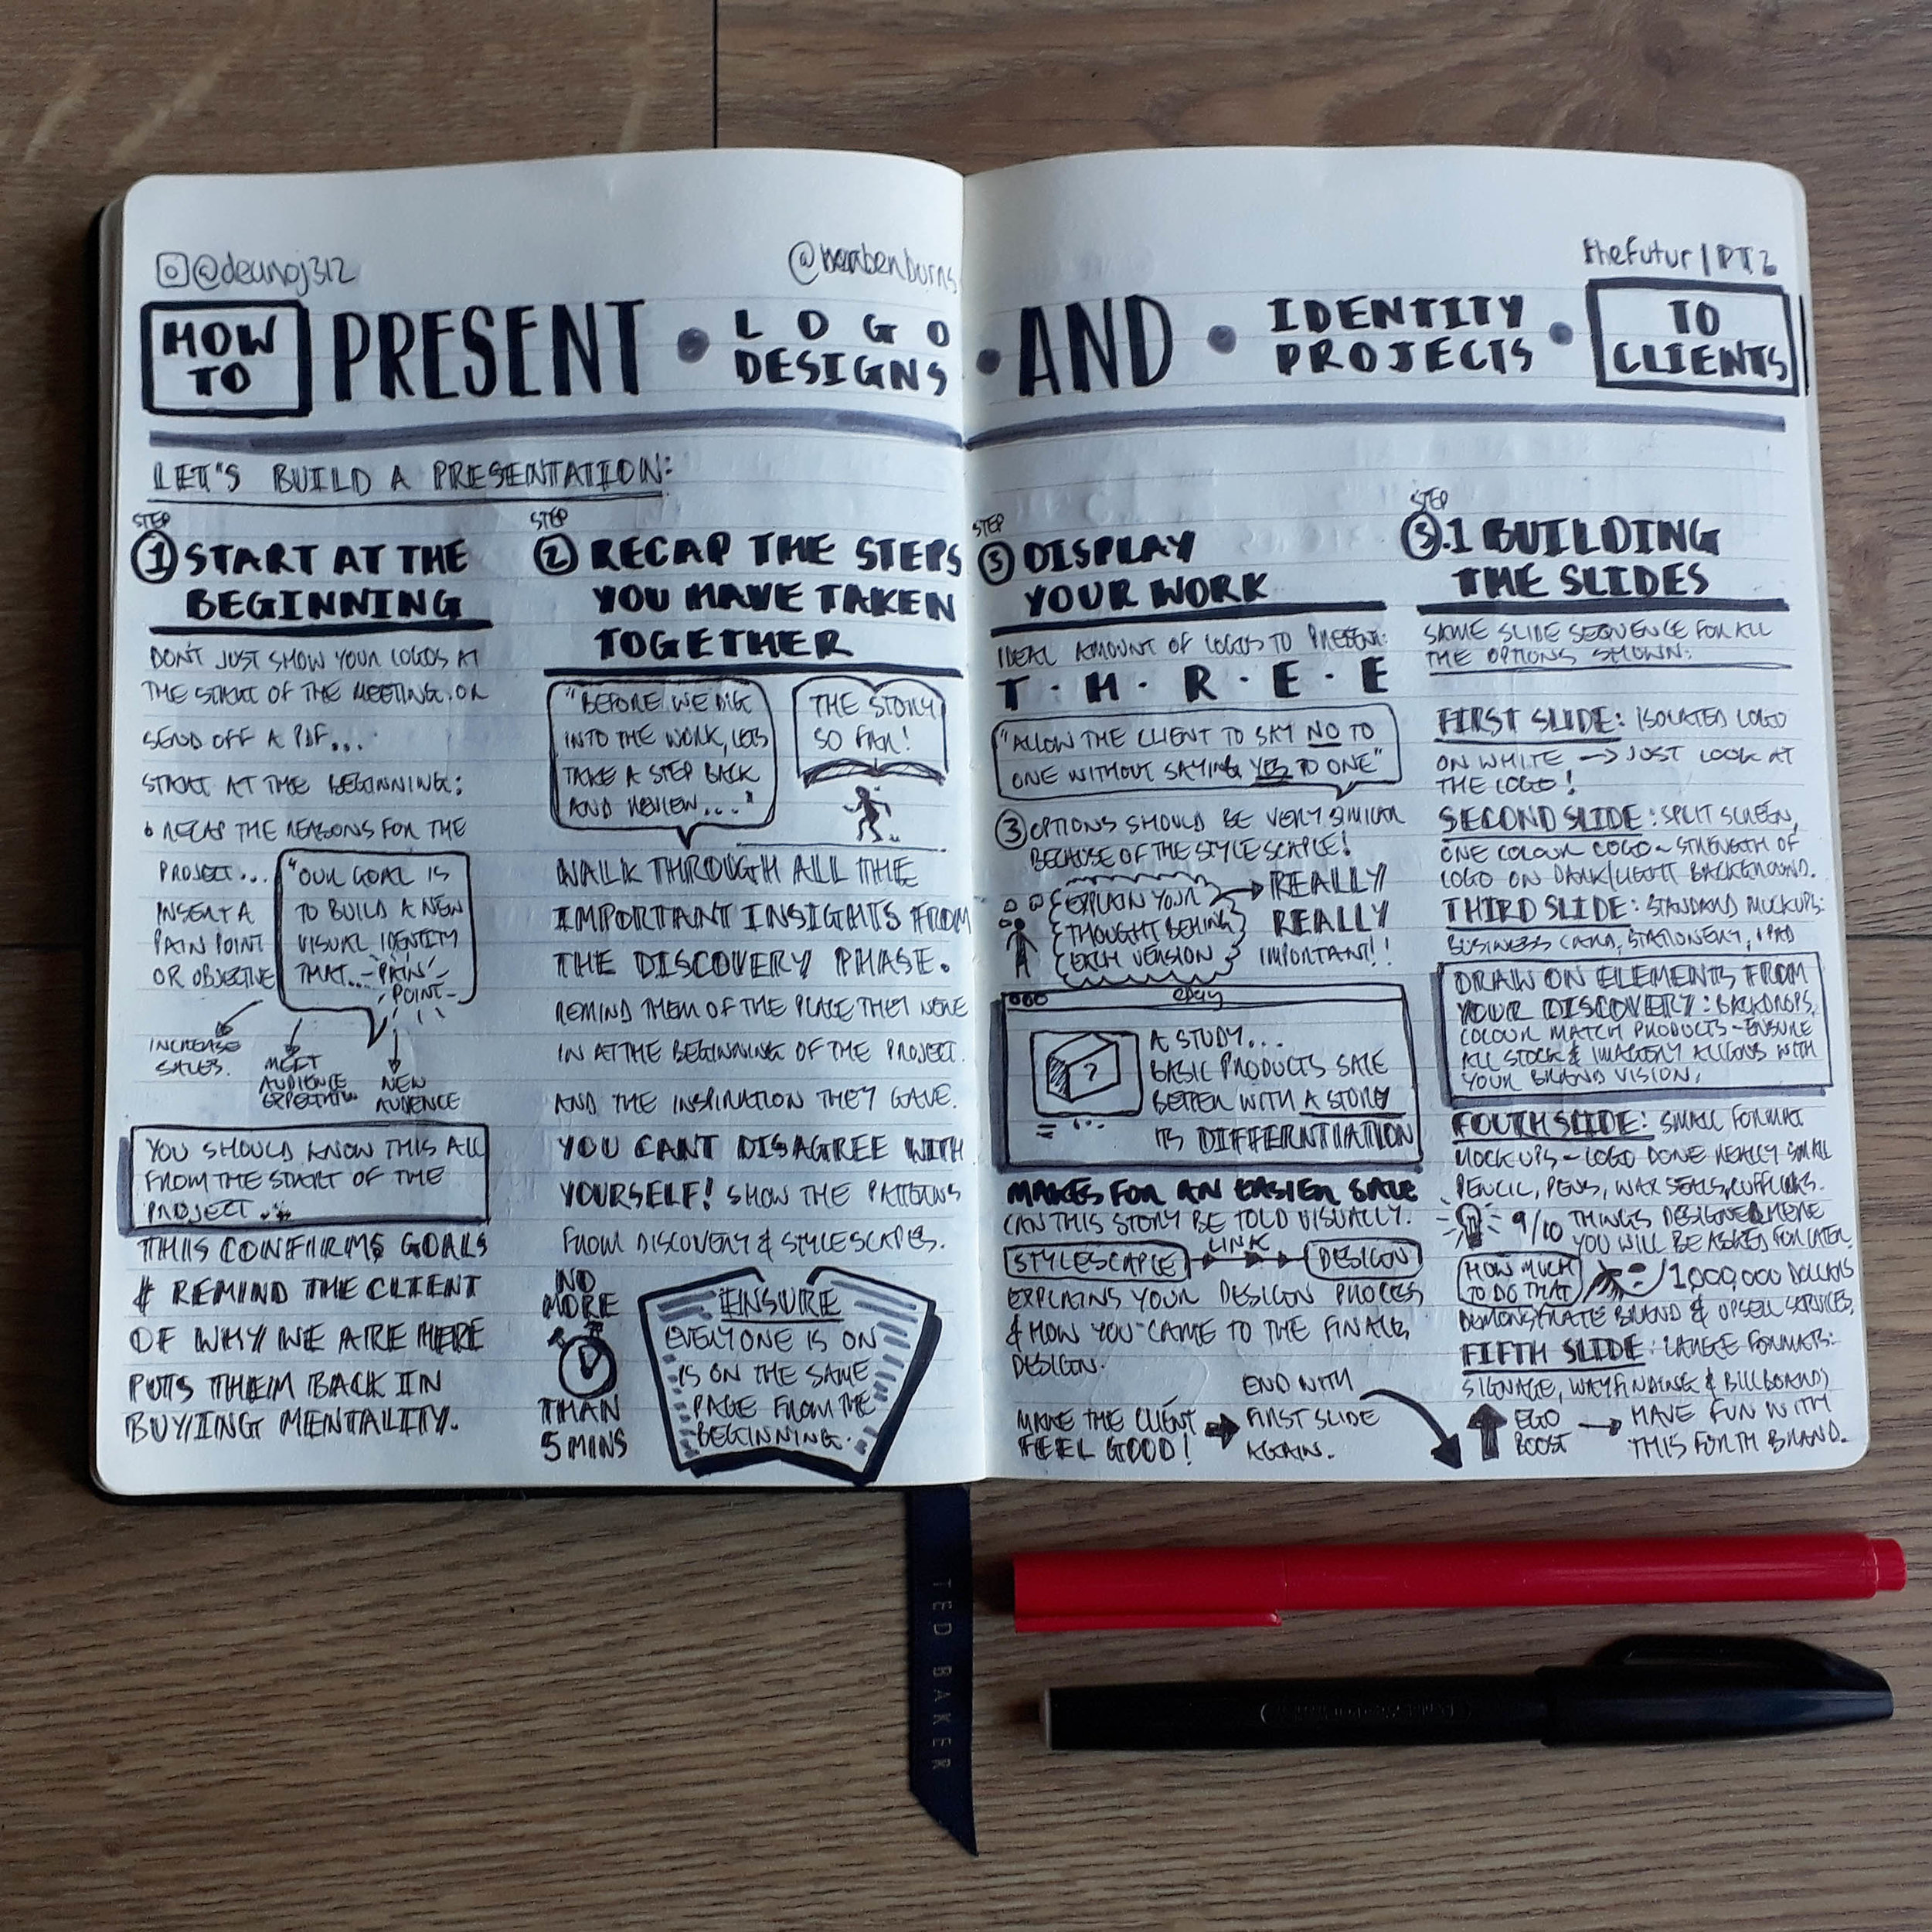 @deanoj312
@benbenburns
thefutur | PT2
HOW
TO
PRESENT
LOGO
DESIGNS
AND
IDENTITY
PROJECTS
TO
CLIENTS
LET'S BUILD A PRESENTATION:
STEP
1 START AT THE
BEGINNING
DON'T JUST SHOW YOUR LOGOS AT
THE START OF THE MEETING. OR
SEND OFF A PDF...
START AT THE BEGINNING:
RECAP THE REASONS FOR THE
PROJECT...
INSERT A
PAIN POINT
OR OBJECTIVE
"OUR GOAL IS
TO BUILD A NEW
VISUAL IDENTITY
THAT... PAIN
POINT
INCREASE
SALES.
MEET
AUDIENCE
NEW
AUDIENCE
YOU SHOULD KNOW THIS ALL
FROM THE START OF THE
PROJECT...
THIS CONFIRMS GOALS
& REMIND THE CLIENT
OF WHY WE ARE HERE
PUTS THEM BACK IN
BUYING MENTALITY.
STEP
2 RECAP THE STEPS
YOU HAVE TAKEN
TOGETHER
"BEFORE WE DIG
INTO THE WORK, LETS
TAKE A STEP BACK
AND REVIEW...."
THE STORY
SO FAR!
WALK THROUGH ALL THE
IMPORTANT INSIGHTS FROM
THE DISCOVERY PHASE.
REMIND THEM OF THE PLACE THEY WERE
IN AT THE BEGINNING OF THE PROJECT.
AND THE INSPIRATION THEY GAVE.
YOU CANT DISAGREE WITH
YOURSELF! SHOW THE PATTERNS
FROM DISCOVERY & STYLESCAPES.
NO
MORE
THAN
5 MINS
ENSURE
EVERYONE IS ON
IS ON THE SAME
PAGE FROM THE
BEGINNING.
STEP
3 DISPLAY
YOUR WORK
IDEAL AMOUNT OF LOGOS TO PRESENT:
T·H·R·E·E
"ALLOW THE CLIENT TO SAY NO TO
ONE WITHOUT SAYING YES TO ONE"
3 OPTIONS SHOULD BE VERY SIMILAR
BECAUSE OF THE STYLESCAPE!
EXPLAIN YOUR
THOUGHT BEHIND
EACH VERSION
REALLY
REALLY
IMPORTANT!!
ebay
?
A STUDY...
BASIC PRODUCTS SALE
BETTER WITH A STORY
ITS DIFFERNTIATION
MAKES FOR AN EASIER SALE
CAN THIS STORY BE TOLD VISUALLY.
STYLESCAPE
LINK
DESIGN
EXPLAINS YOUR DESIGN PROCESS
& HOW YOU CAME TO THE FINAL
DESIGN.
MAKE THE CLIENT
FEEL GOOD!
END WITH
FIRST SLIDE
AGAIN.
STEP
3.1 BUILDING
THE SLIDES
SAME SLIDE SEQUENCE FOR ALL
THE OPTIONS SHOWN:
FIRST SLIDE: ISOLATED LOGO
ON WHITE → JUST LOOK AT
THE LOGO!
SECOND SLIDE: SPLIT SCREEN,
ONE COLOUR LOGO ~ STRENGTH OF
LOGO ON DARK/LIGHT BACKGROUND.
THIRD SLIDE: STANDARD MOCKUPS:
BUSINESS CARD, STATIONERY, IPAD
DRAW ON ELEMENTS FROM
YOUR DISCOVERY: BACKDROPS,
COLOUR MATCH PRODUCTS - ENSURE
ALL STOCK & IMAGERY ALIGNS WITH
YOUR BRAND VISION.
FOUTH SLIDE: SMALL FORMAT
MOCKUPS - LOGO DONE REALLY SMALL
PENCIL, PENS, WAX SEALS, CUFFLINKS.
9/10 THINGS DESIGNED HERE
YOU WILL BE ASKED FOR LATER.
HOW MUCH
TO DO THAT
1,000,000 DOLLARS
DEMONSTRATE BRAND & UPSELL SERVICES.
FIFTH SLIDE: LARGE FORMATS:
SIGNAGE, WAYFINDING & BILLBOARD
EGO
BOOST
HAVE FUN WITH
THIS FORTH BRAND.
TED BAKER